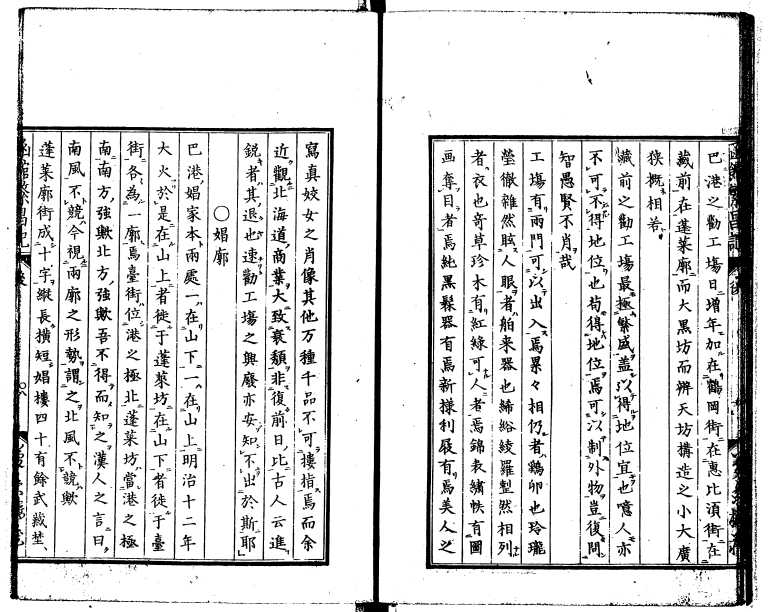 巴港之勸工場日增年加在鶴岡街在惠比須街在
藏前在蓬萊廓而大黒坊而辨天坊搆造之小大廣
狹概相若
藏前之勸工場最極繁盛盖以得地位宜也噫人亦
不可不得地位也苟得地位焉可以制外物豈復問
智愚賢不肖哉
工塲有兩門可以出入焉累々相仍者鷄卵也玲瓏
瑩徹雜然眩人眼者舶来器也絺綌綾羅整然相列
者衣也奇草珍木有紅緑可人者焉錦表繡帙有圖
画奪目者焉純黒髹器有焉新樣利屐有焉美人之
寫真姣女之肖像其他万種千品不可摟指焉而余
近觀北海道商業大致衰頽非復前日比古人云進
鋭者其退也速勸工塲之興廢亦安知不出於斯耶
○娼廓
巴港娼家本兩處一在山下一在山上明治十二年
大火於是在山上者徙于蓬萊坊在山下者徙于臺
街各為一廓焉臺街位港之極北蓬萊坊當港之極
南南方強歟北方強歟吾不得而知之漢人之言曰
南風不競今視兩廓之形勢謂之北風不競歟
蓬萊廓街成十字縱長横短娼樓四十有餘武藏埜